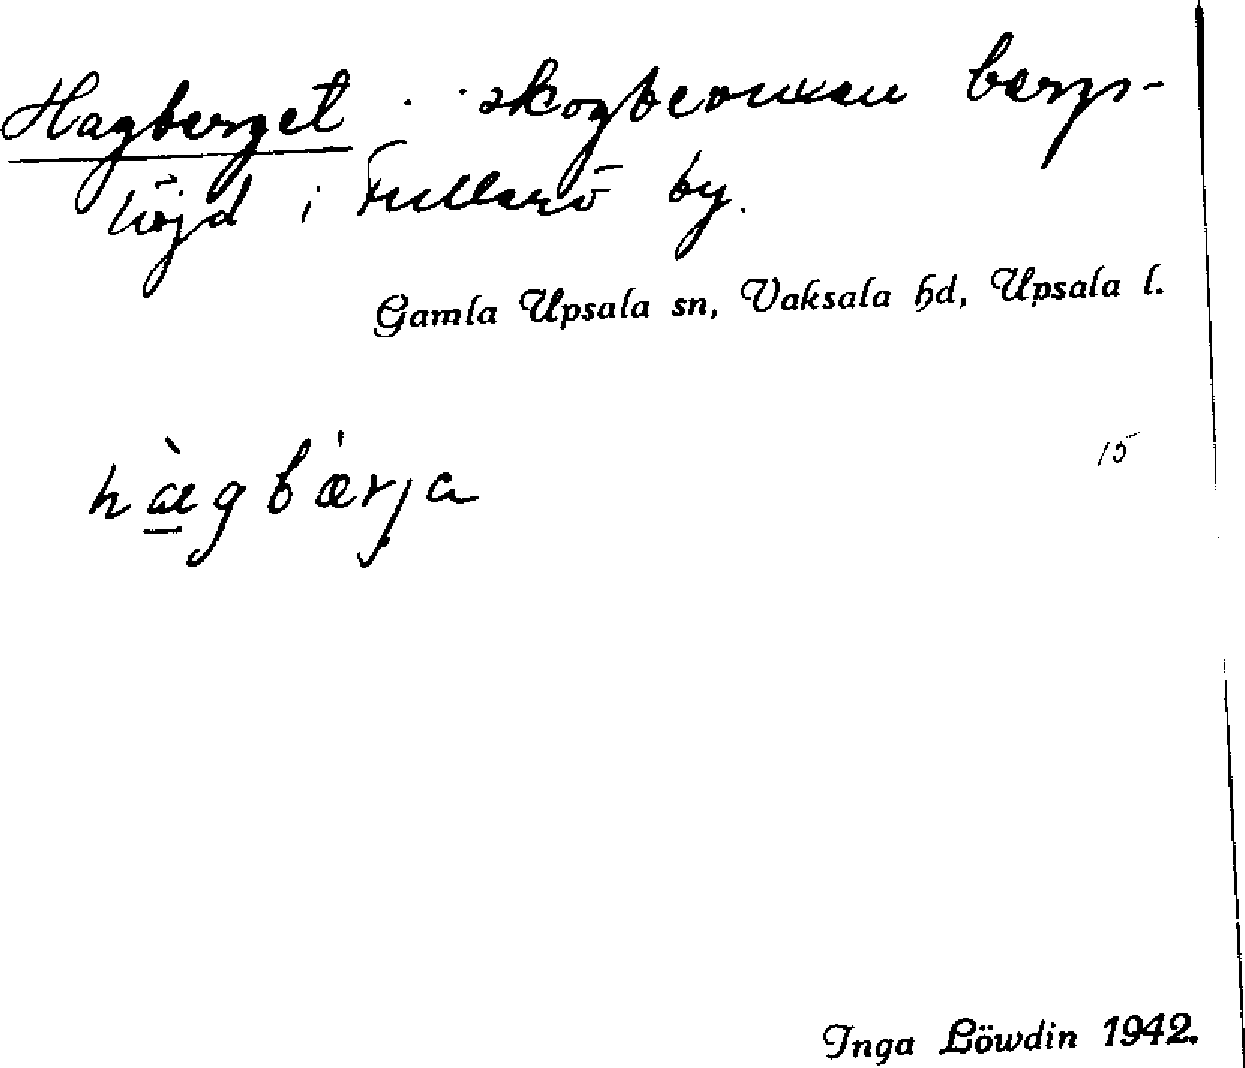 Hagberget . . skogbevuxen bergs-
höjd i Fullerö by.
Gamla Upsala sn, Vaksala hd, Upsala l.
15
hàgbǽrja
Inga Löwdin 1942.